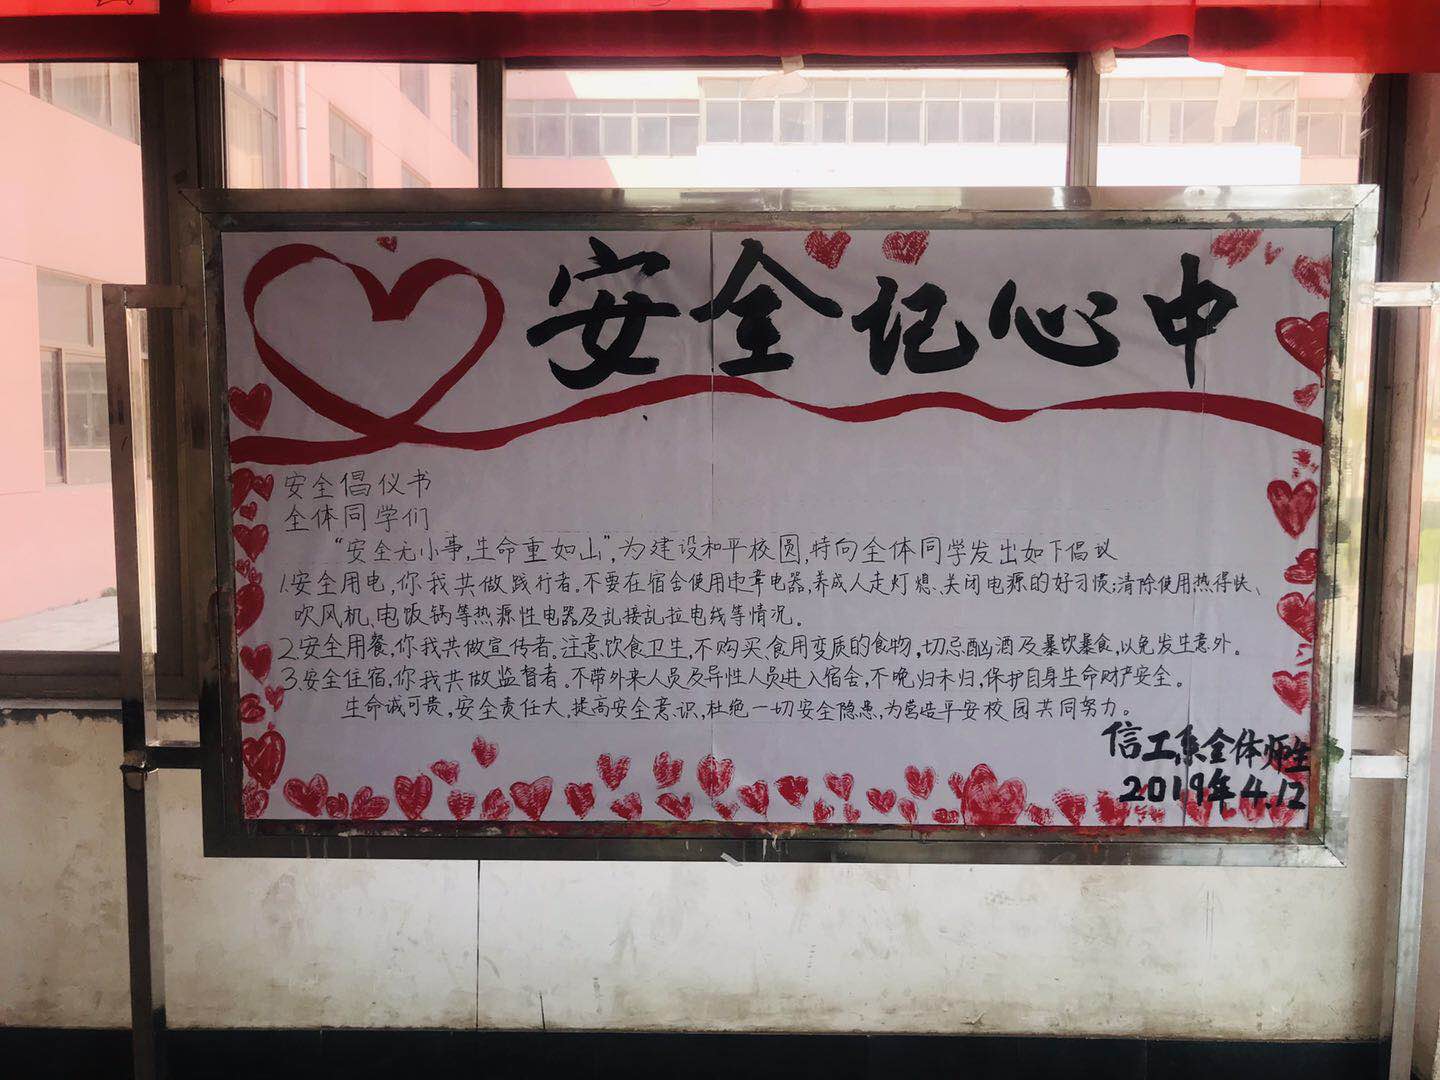 安全记心中
安全倡仪书
全体同学们
“安全无小事,生命重如山”,为建设和平校园,特向全体同学发出如下倡议
1.安全用电,你我共做践行者。不要在宿舍使用违章电器,养成人走灯熄、关闭电源的好习惯;清除使用热得快、
吹风机、电饭锅等热源性电器及乱接乱拉电线等情况。
2.安全用餐,你我共做宣传者。注意饮食卫生,不购买、食用变质的食物,切忌酗酒及暴饮暴食,以免发生意外。
3.安全住宿,你我共做监督者。不带外来人员及异性人员进入宿舍,不晚归未归,保护自身生命财产安全。
生命诚可贵,安全责任大,提高安全意识,杜绝一切安全隐患,为营造平安校园共同努力。
信工系全体师生
2019年4.12